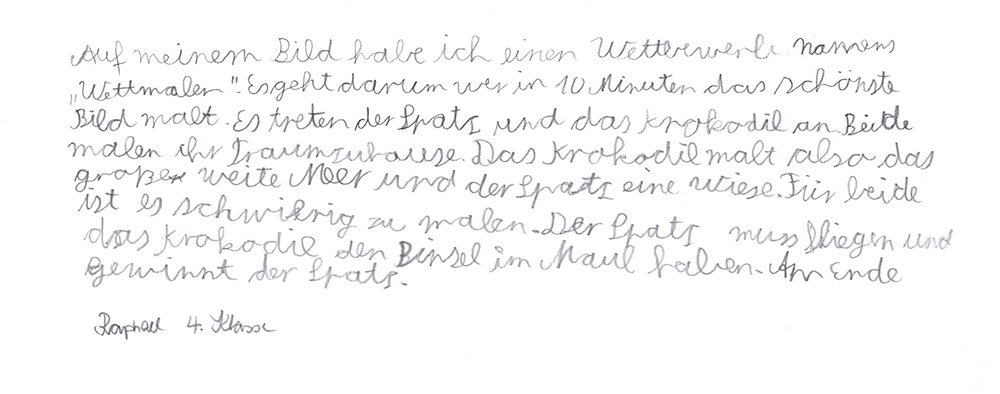 Auf meinem Bild habe ich einen Wettbewerb namens
„Wettmalen". Es geht darum wer in 10 Minuten das schönste
Bild malt. Es treten der Spatz und das Krokodil an. Beide
malen ihr Traumzuhause. Das Krokodil malt also das
große weite Meer und der Spatz eine Wiese. Für beide
ist es schwikrig zu malen. Der Spatz muss fliegen und
das Krokodil den Binsel im Maul haben. Am Ende
gewinnt der Spatz.
Raphael 4. Klasse